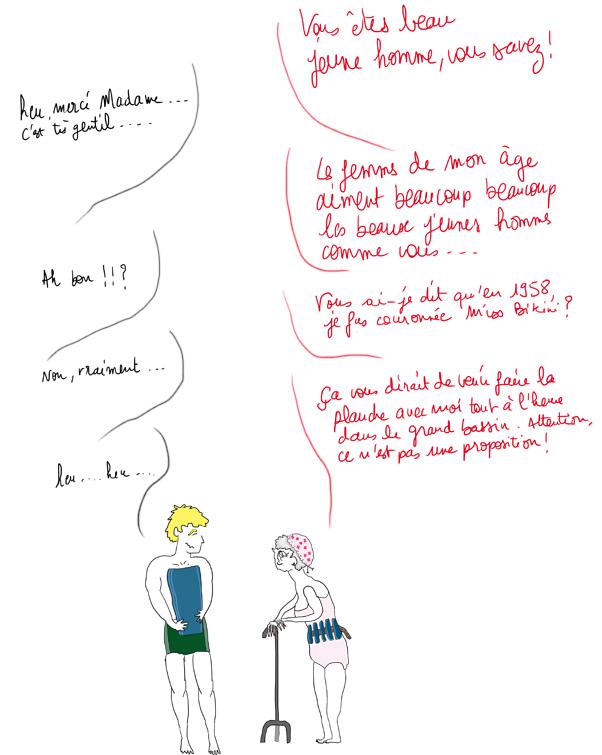 Vous êtes beau
jeune homme, vous savez!
heu, merci Madame...
c'est très gentil....
Les femmes de mon âge
aiment beaucoup beaucoup
les beaux jeunes hommes
comme vous...
Ah bon !!?
Vous ai-je dit qu'en 1958,
je fus couronnée Miss Bikini?
Non, vraiment...
Ça vous dirait de venir faire la
planche avec moi tout à l'heure
dans le grand bassin. Attention,
ce n'est pas une proposition!
heu.... heu....